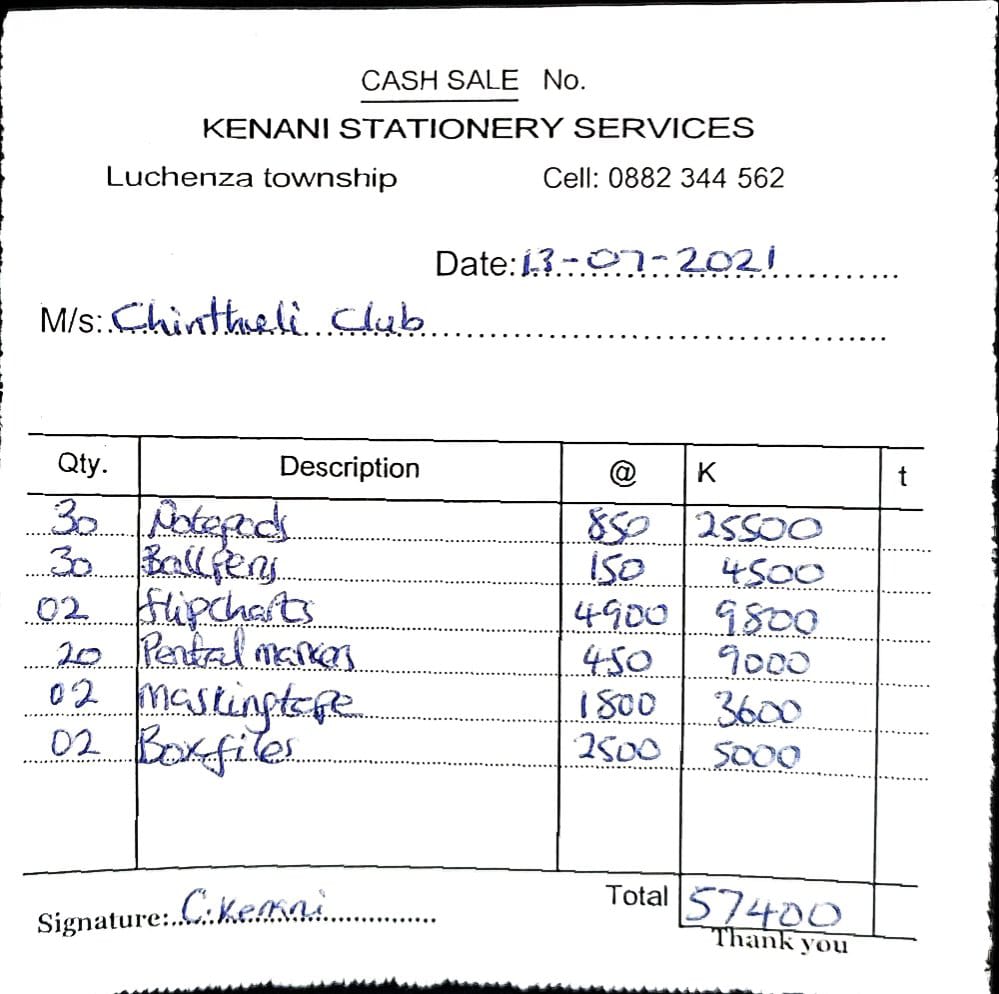 CASH SALE No.
KENANI STATIONERY SERVICES
Luchenza township Cell: 0882 344 562
Date: 13-07-2021
M/s: Chintheli Club
Qty. Description @ K t
30 Notepads 850 25500
30 Ballpens 150 4500
02 flipcharts 4900 9800
20 Pentral markers 450 9000
02 Maskingtape 1800 3600
02 Boxfiles 2500 5000
Total 57400
Signature: C.Kenani
Thank you